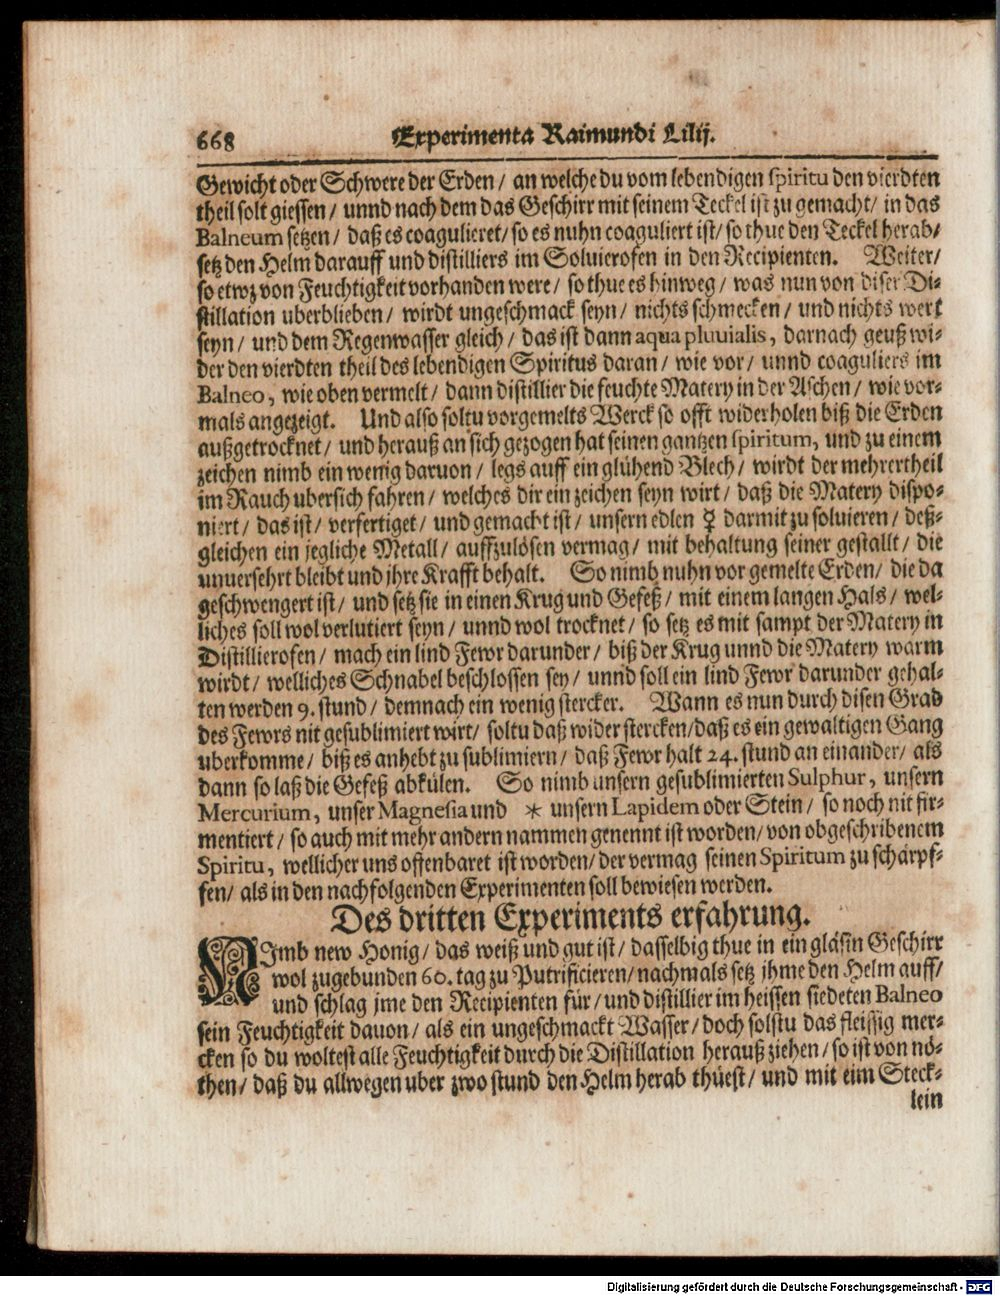 668 Experimenta Raimundi Lilij.
Gewicht oder Schwere der Erden / an welche du vom lebendigen spiritu den vierdten
theil solt giessen / unnd nach dem das Geschirr mit seinem Teckel ist zu gemacht / in das
Balneum setzen / daß es coagulieret / so es nuhn coaguliert ist / so thue den Teckel herab /
setz den Helm darauff und distilliers im Soluierofen in den Recipienten. Weiter /
so etwz von Feuchtigkeit vorhanden were / so thue es hinweg / was nun von diser Di-
stillation uberblieben / wirdt ungeschmack seyn / nichts schmecken / und nichts wert
seyn / und dem Regenwasser gleich / das ist dann aqua pluuialis, darnach geuß wi-
der den vierdten theil des lebendigen Spiritus daran / wie vor / unnd coaguliers im
Balneo, wie oben vermelt / dann distillier die feuchte Matery in der Aschen / wie vor-
mals angezeigt. Und also soltu vorgemelts Werck so offt widerholen biß die Erden
außgetrocknet / und herauß an sich gezogen hat seinen gantzen spiritum, und zu einem
zeichen nimb ein wenig daruon / legs auff ein glühend Blech / wirdt der mehrertheil
im Rauch ubersich fahren / welches dir ein zeichen seyn wirt / daß die Matery dispo-
niert / das ist / verfertiget / und gemacht ist / unsern edlen ☿ darmit zu soluieren / deß-
gleichen ein jegliche Metall / auffzulösen vermag / mit behaltung seiner gestallt / die
unuersehrt bleibt und jhre Krafft behalt. So nimb nuhn vor gemelte Erden / die da
geschwengert ist / und setz sie in einen Krug und Gefeß / mit einem langen Hals / wel-
liches soll wol verlutiert seyn / unnd wol trocknet / so setz es mit sampt der Matery in
Distillierofen / mach ein lind Fewr darunder / biß der Krug unnd die Matery warm
wirdt / welliches Schnabel beschlossen sey / unnd soll ein lind Fewr darunder gehal-
ten werden 9. stund / demnach ein wenig stercker. Wann es nun durch disen Grad
des Fewrs nit gesublimiert wirt / soltu daß wider stercken / daß es ein gewaltigen Gang
uberkomme / biß es anhebt zu sublimiern / daß Fewr halt 24. stund an einander / als
dann so laß die Gefeß abkülen. So nimb unsern gesublimierten Sulphur, unsern
Mercurium, unser Magnesia und * unsern Lapidem oder Stein / so noch nit fir-
mentiert / so auch mit mehr andern nammen genennt ist worden / von obgeschribenem
Spiritu, wellicher uns offenbaret ist worden / der vermag seinen Spiritum zu schärpf-
fen / als in den nachfolgenden Experimenten soll bewiesen werden.
Des dritten Experiments erfahrung.
NImb new Honig / das weiß und gut ist / dasselbig thue in ein gläsin Geschirr
wol zugebunden 60. tag zu Putrificieren / nachmals setz ihme den Helm auff /
und schlag jme den Recipienten für / und distillier im heissen siedeten Balneo
sein Feuchtigkeit dauon / als ein ungeschmackt Wasser / doch solstu das fleissig mer-
cken so du woltest alle Feuchtigkeit durch die Distillation herauß ziehen / so ist von nö-
then / daß du allwegen uber zwo stund den Helm herab thüest / und mit eim Steck-
lein
Digitalisierung gefördert durch die Deutsche Forschungsgemeinschaft - DFG